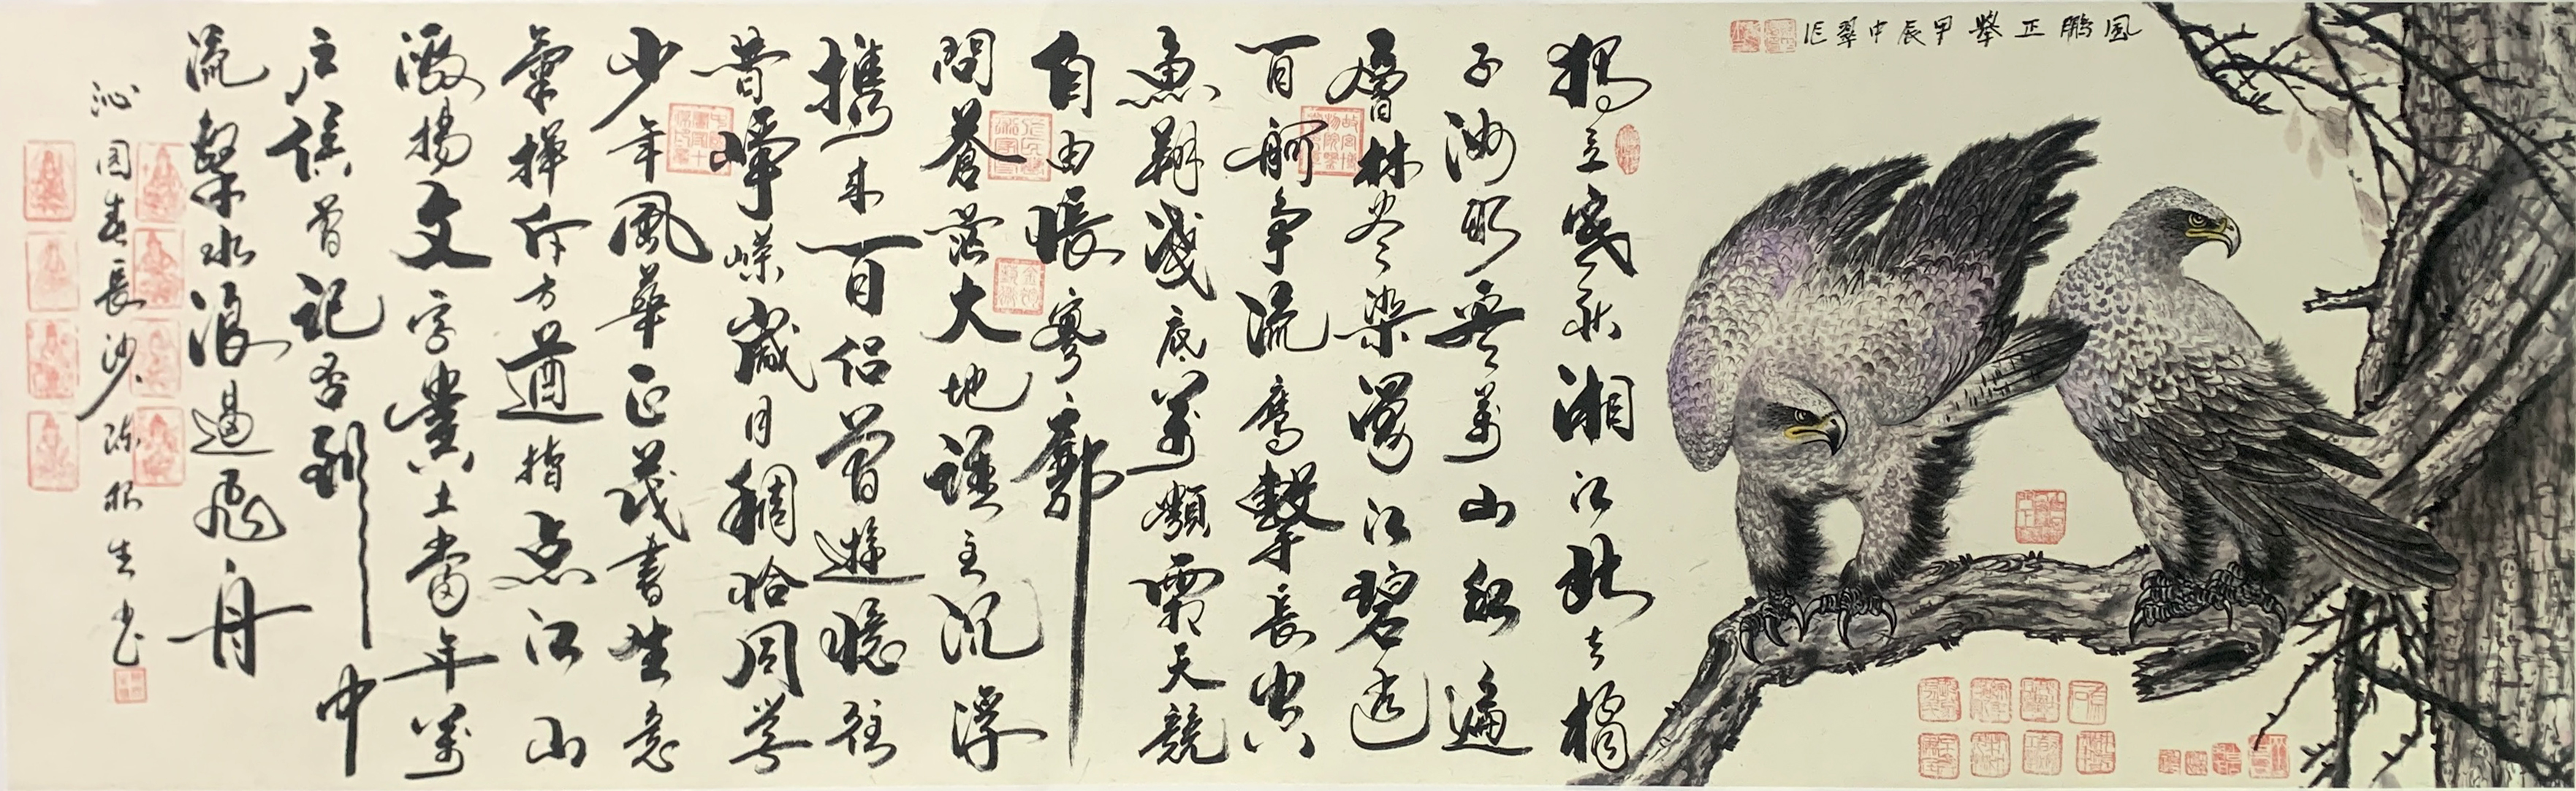 风鹏正擧甲辰中翠作
獨立寒秋湘江北去橘
子洲頭看萬山紅遍
層林尽染漫江碧透
百舸争流鹰擊長空
魚翔淺底萬類霜天競
自由悵寥廓
問蒼茫大地誰主沉浮
攜来百侣曾遊憶往
昔崢嶸歲月稠恰同學
少年風華正茂書生意
氣揮斥方遒指点江山
激揚文字糞土當年萬
户侯曾記否到中
流擊水浪遏飛舟
沁园春長沙陈根生书